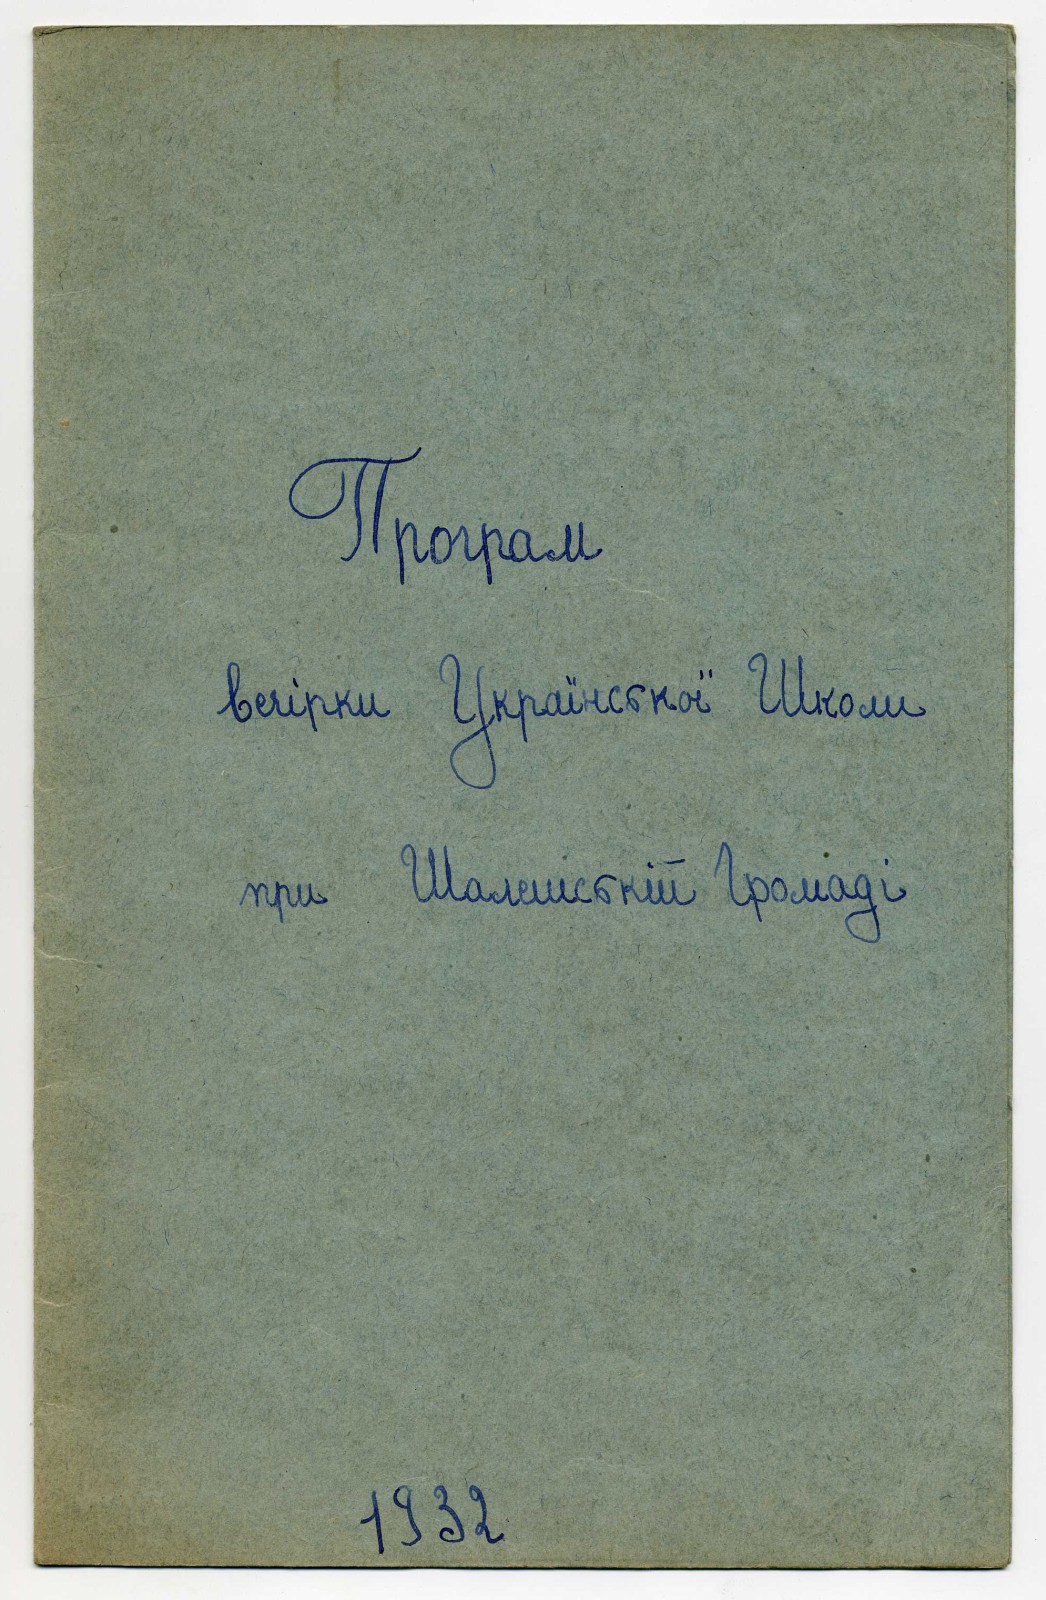 Програм
вечірки Української Школи
при Шалетській Громаді
1932